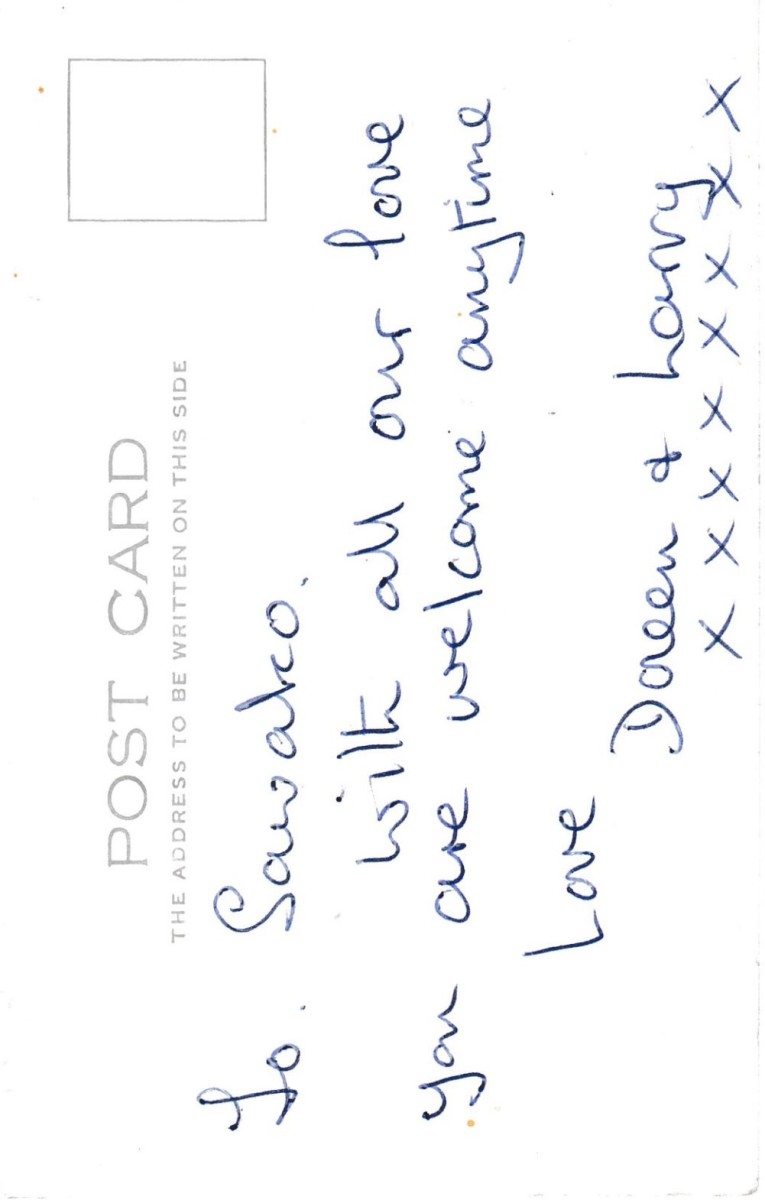 POST CARD
THE ADDRESS TO BE WRITTEN ON THIS SIDE
To. Sawako.
With all our love
you are welcome anytime
Love
Doreen & Larry
x x x x x x x x